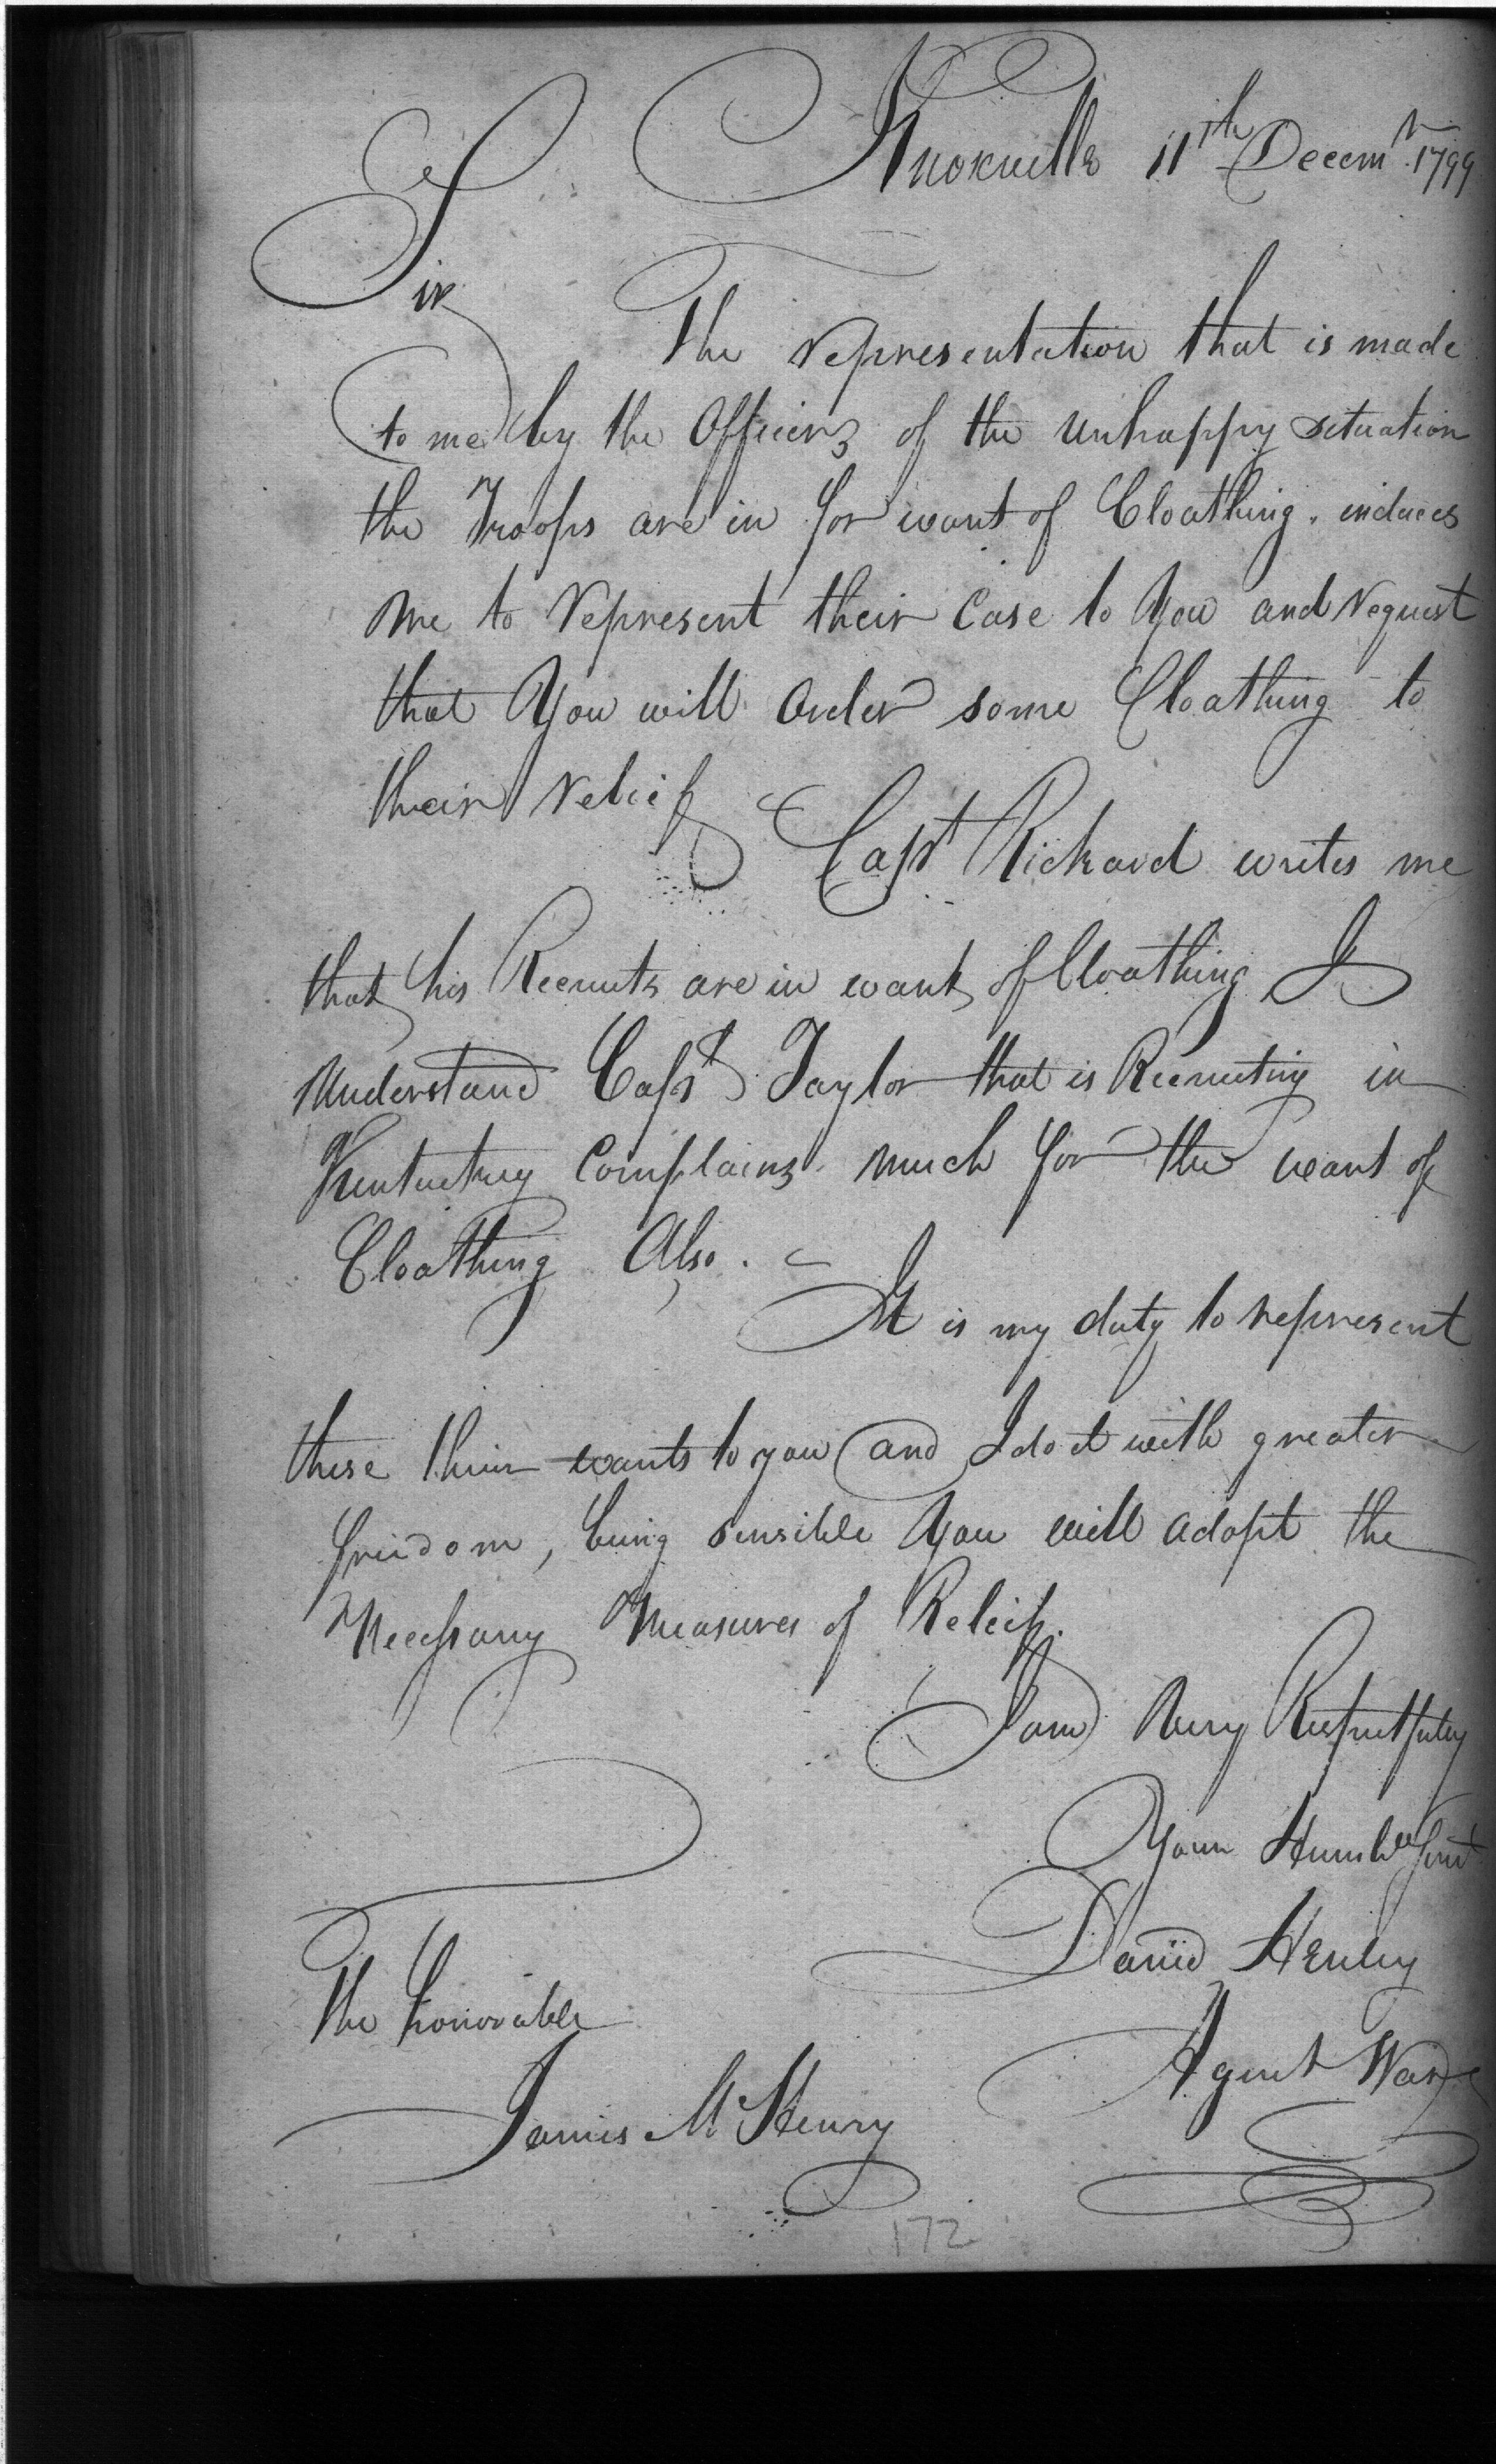 Knoxville 11th Decemr. 1799
Sir
The representation that is made
to me by the Officers of the unhappy situation
the Troops are in for want of Cloathing. induces
me to represent their Case to You and request
that You will Order some Cloathing to
their relief
Capt Rickard writes me
that his Recruits are in want of Cloathing I
Understand Capt Taylor that is Recruiting in
Kentuckey Complains much for the want of
Cloathing Also. -
It is my duty to represent
these their wants to you and I do it with greater
freedom, being sensible You will adopt the
Necessary Measures of Releif.
I am Very Respectfuley
Your Humble Servt
David Henley
Agent War
The honorable
James McHenry
172